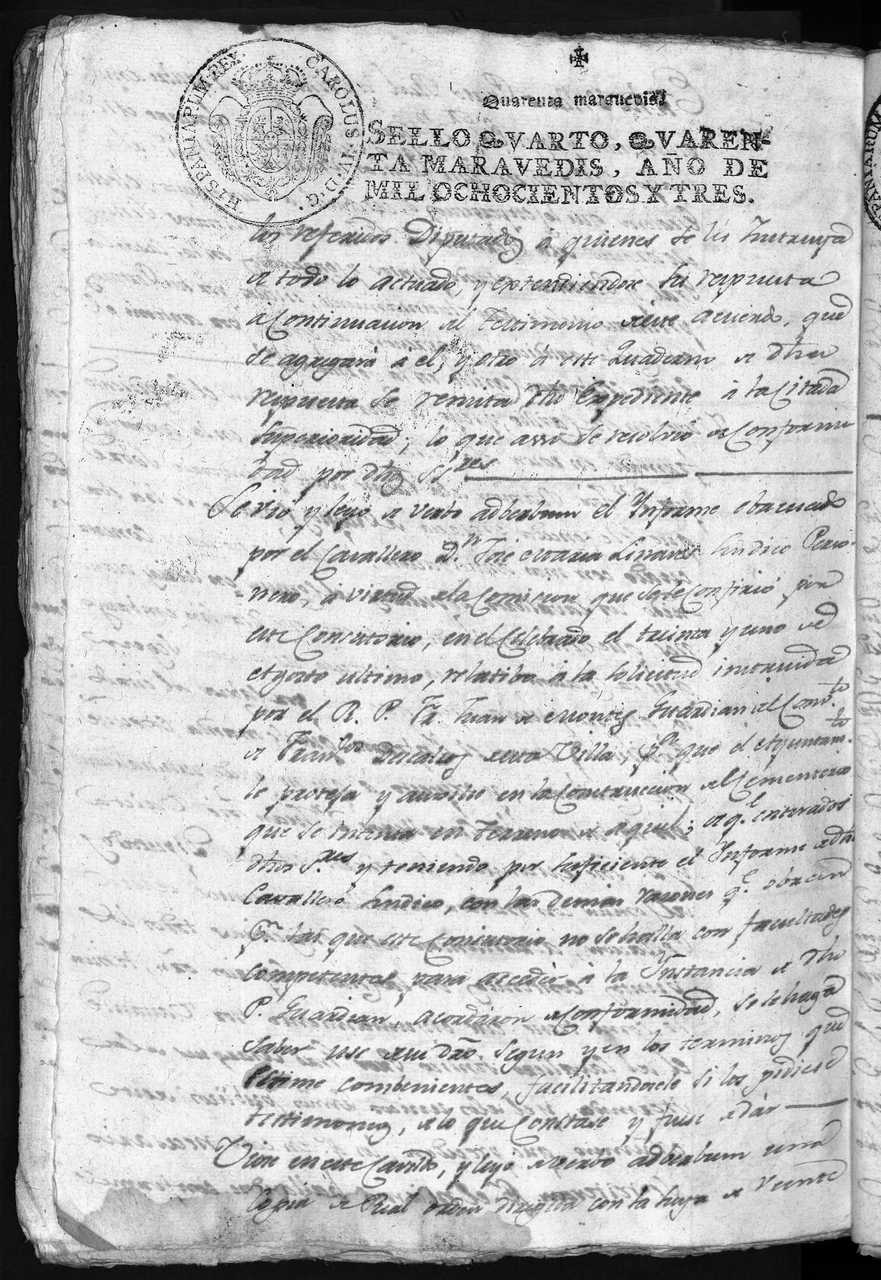 HISPANIARUM REX CAROLUS IV D. G.
Quarenta marauedis
SELLO QVARTO, QVAREN-
TA MARAVEDIS, AÑO DE
MIL OCHOCIENTOS Y TRES.
los referidos Diputados á quienes se les Instruya
de todo lo actuado, y extendiendose su respuesta
á Continuacion del testimonio de este acuerdo, que
se agregará á el, y otro á este Quaderno de dha
respuesta se remita dho Expediente á la Citada
Superioridad; lo que assi se resolvió de Conformi
dad por dhos Sres
Se vio y leyó de verbo adberbum el Informe ebacuado
por el Cavallero Dn José Maria Linares Sindico Perso
nero, á virtud de la Comision que se le Confirió por
este Consistorio, en el Celebrado el treinta y uno de
Agosto ultimo, relatibo á la solicitud introducida
por el R. P. Fr. Juan de Montes Guardian del Convto
de Francos Descalzos de esta Villa pa que el Ayuntamto
le proteja y auxilie en la Construccion del Cementerio
que se intenta en terreno de aquel; de qe enterados
dhos Sres y teniendo por suficiente el Informe de dho
Cavallero Sindico, con las demas razones qe
Pr las que este Consistorio no se halla con facultades
competentes para acceder á la Instancia de dho
P. Guardian, acordaron de Conformidad, se le haga
saber use de su dro. segun y en los terminos que
estime combenientes, facilitandosele si los pidiese
testimonios, de lo que Constase y fuese de dar
Viose en este Cavildo, y leyó de verbo adberbum una
Copia de Real orden dirigida con la fecha de veinte